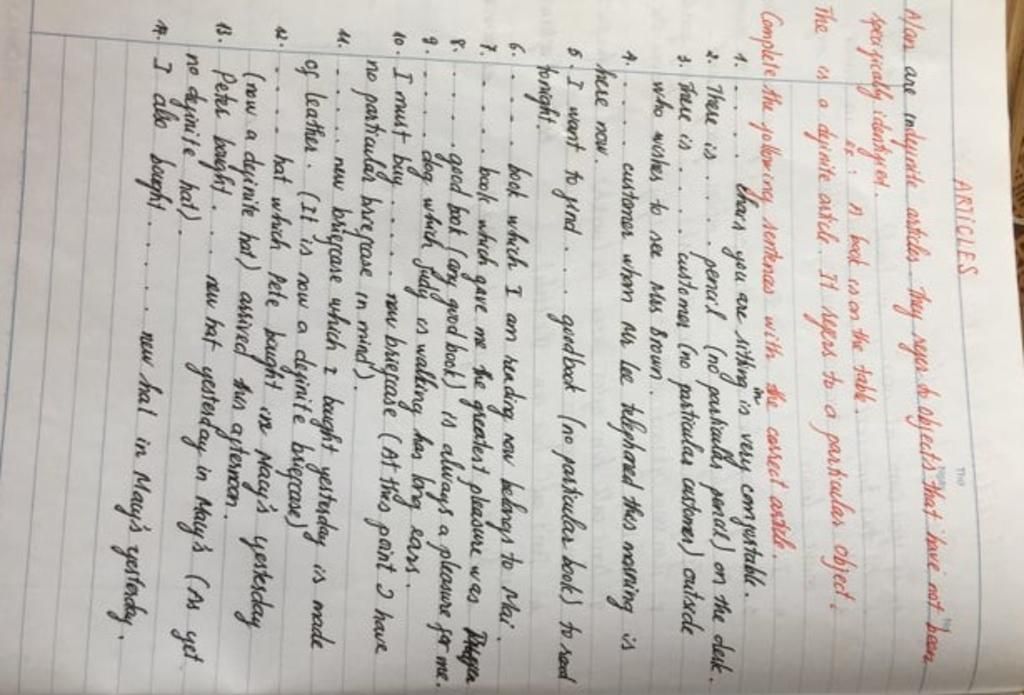 ARTICLES
A/an are indefinite articles. They refer to objects that have not been
specifically identified.
ex: A book is on the table.
The is a definite article. It refers to a particular object.
Complete the following sentences with the correct article.
1. ..... chair you are sitting in is very comfortable.
2. There is ..... pencil (no particular pencil) on the desk.
3. There is ..... customer (no particular customer) outside
who wishes to see Mrs Brown.
4. ..... customer whom Mr Lee telephoned this morning is
here now.
5. I want to find .... good book (no particular book) to read
tonight.
6. ..... book which I am reading now belongs to Mai.
7. ..... book which gave me the greatest pleasure was
8. ..... good book (any good book) is always a pleasure for me.
9. ..... dog which Judy is walking has long ears.
10. I must buy ..... new briefcase (At this point I have
no particular briefcase in mind).
11. ..... new briefcase which I bought yesterday is made
of leather. (It is now a definite briefcase)
12. ..... hat which Pete bought in Macy's yesterday
(now a definite hat) arrived this afternoon.
13. Peter bought .... new hat yesterday in Macy's (As yet
no definite hat).
14. I also bought ...... new hat in Macy's yesterday.